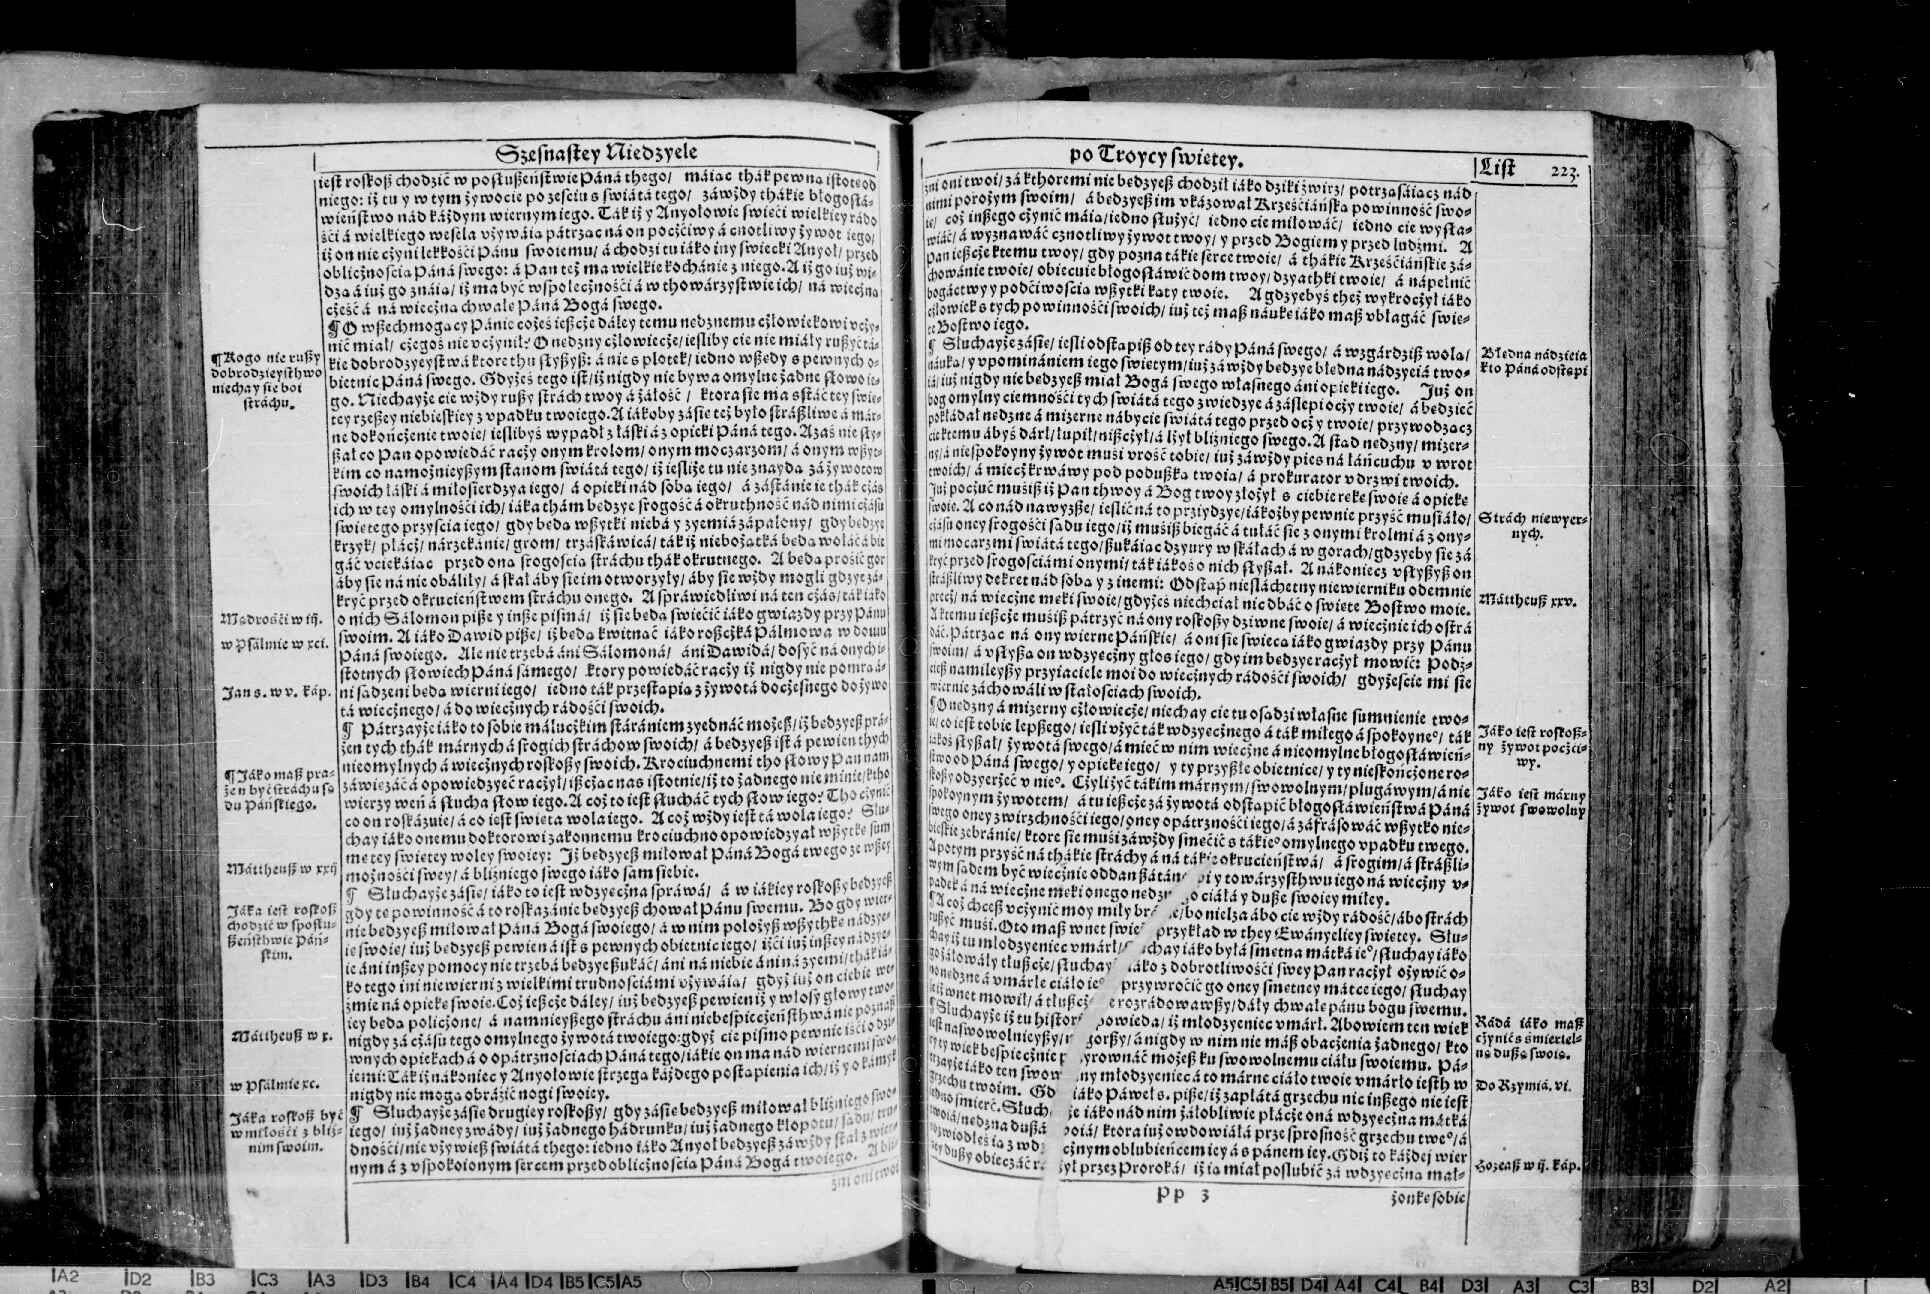 Szesnastey Niedzyele
iest roskoß chodzić w posłußeństwie Páná thego/ máiąc thák pewną istotę od
niego: iż tu y w tym żywocie po ześciu s świátá tego/ záwżdy thákie błogosłá-
wieństwo nád káżdym wiernym iego. Ták iż y Anyołowie święci wielkiey rádo
ści á wielkiego wesela vżywáią pátrząc ná on poczciwy á cnotliwy żywot iego/
iż on nie czyni lekkości Pánu swoiemu/ á chodzi tu iáko iny świecki Anyoł/ przed
oblicznością Páná swego: á Pan też ma wielkie kochánie z niego. A iż go iuż wi-
dzą á iuż go znáią/ iż ma być w społeczności á w thowárzystwie ich/ ná wieczną
cześć á ná wieczną chwałę Páná Bogá swego.
¶ O wßechmogący Pánie cożeś ießcze dáley temu nędznemu człowiekowi vczy-
nić miał/ czegoś nie vczynił? O nędzny człowiecze/ iesliby cie nie miáły rußyć tá-
kie dobrodzyeystwá ktore thu słyßyß: á nie s plotek/ iedno wßędy s pewnych o-
bietnic Páná swego. Gdyżeś tego ist/ iż nigdy nie bywa omylne żadne słowo ie-
go. Niechayże cie wżdy rußy strách twoy á żáłość/ ktora sie ma sstáć tey świę-
tey rzeßey niebieskiey z vpadku twoiego. A iákoby zásię też było stráßliwe á már-
ne dokończenie twoie/ ieslibyś wypadł z łáski á z opieki Páná tego. Azaś nie sły-
ßał co Pan opowiedáć raczy onym krolom/ onym moczarzom/ á onym wßyt-
kim co namożnieyßym stanom świátá tego/ iż iesliże tu nie znaydą zá żywotow
swoich łáski á miłosierdzya iego/ á opieki nád sobą iego/ á zástánie ie thák czás
ich w tey omylności ich/ iáka thám będzye srogość á okruthność nád nimi czásu
świętego przyścia iego/ gdy będą wßytki niebá y zyemiá zápalony/ gdy będzye
krzyk/ płácz/ nárzekánie/ grom/ trzaskáwicá/ ták iż niebożątká będą wołáć á bie
gáć vciekáiąc przed oną srogością stráchu thák okrutnego. A będą prosić gor
áby sie ná nie obáliły/ á skał áby sie im otworzyły/ áby sie wżdy mogli gdzye zá-
kryć przed okrucieństwem stráchu onego. A spráwiedliwi ná ten czás/ ták iáko
o nich Sálomon piße y inße pismá/ iż sie będą świecić iáko gwiazdy przy Pánu
swoim. A iáko Dawid piße/ iż będą kwitnąć iáko roßczká Pálmowa w domu
Páná swoiego. Ale nie trzebá áni Sálomoná/ áni Dawidá/ dosyć ná onych i-
stotnych słowiech Páná sámego/ ktory powiedáć raczy iż nigdy nie pomrą á-
ni sądzeni będą wierni iego/ iedno ták przestąpią z żywotá doczesnego do żywo
tá wiecznego/ á do wiecznych rádości swoich.
¶ Pátrzayże iáko to sobie máluczkim stárániem zyednáć możeß/ iż będzyeß prá-
zen tych thák márnych á srogich stráchow swoich/ á będzyeß ist á pewien thych
nieomylnych á wiecznych roskoßy swoich. Krociuchnemi tho słowy Pan nam
záwięzáć á opowiedzyeć raczył/ ißcząc nas istotnie/ iż to żadnego nie minie/ ktho
wierzy weń á słucha słow iego. A coż to iest słucháć tych słow iego? Tho czynić
co on roskázuie/ á co iest święta wola iego. A coż wżdy iest tá wola iego? Słu-
chay iáko onemu doktorowi zakonnemu krociuchno opowiedzyał wßytkę sum
mę tey świętey woley swoiey: Iż będzyeß miłował Páná Bogá twego ze wßey
możności swey/ á bliźniego swego iáko sam siebie.
¶ Słuchayże zásię/ iáko to iest wdzyęczna spráwá/ á w iákiey roskoßy będzyeß
gdy tę powinność á to roskazánie będzyeß chował Pánu swemu. Bo gdy wier-
nie będzyeß miłował Páná Bogá swoiego/ á w nim położyß wßythkę nádzye-
ię swoię/ iuż będzyeß pewien á ist s pewnych obietnic iego/ iżci iuż inßey nádzye-
ie áni inßey pomocy nie trzebá będzyeß ßukáć/ áni ná niebie áni ná zyemi/ thák iá-
ko tego ini niewierni z wielkimi trudnościámi vżywáią/ gdyż iuż on ciebie we-
źmie ná opiekę swoię. Coż ießcze dáley/ iuż będzyeß pewien iż y włosy głowy two-
iey będą policzone/ á namnieyßego stráchu áni niebespieczeństhwá nie poznaß
nigdy zá czásu tego omylnego żywotá twoiego: gdyż cie pismo pewnie iści o dzi-
wnych opiekách á o opátrznościách Páná tego/ iákie on ma nád wiernemi swo-
iemi: Ták iż nákoniec y Anyołowie strzegą káżdego postąpienia ich/ iż y o kámyk
nigdy nie mogą obrázić nogi swoiey.
¶ Słuchayże zásię drugiey roskoßy/ gdy zásię będzyeß miłował bliźniego swo-
iego/ iuż żadney zwády/ iuż żadnego hádrunku/ iuż żadnego kłopotu/ sądu/ tru-
dności/ nie vżywieß świátá thego: iedno iáko Anyoł będzyeß záwżdy stał z wier-
nym á z vspokoionym sercem przed oblicznością Páná Bogá twoiego. A bli-
źni oni twoi
¶ Kogo nie rußy
dobrodzieysthwo
niechay sie boi
stráchu.
Mądrości w iij.
w Psalmie w xci.
Jan s. w v. káp.
¶ Jáko maß prá-
zen być stráchu są
du Páńskiego.
Máttheuß w xxij
Jáka iest roskoß
chodzić w sposłu-
ßeństhwie Páń-
skim.
Máttheuß w x.
w Psalmie xc.
Jáka roskoß być
w miłości z bliź-
nim swoim.
po Troycy świętey.
List 223.
źni oni twoi/ zá kthoremi nie będzyeß chodził iáko dziki źwirz/ potrząsáiącz nád
nimi porożym swoim/ á będzyeß im vkázował Krześciáńską powinność swo-
ię/ coż inßego czynić máią/ iedno służyć/ iedno cie miłowáć/ iedno cie wysłá-
wiáć/ á wyznawáć cznotliwy żywot twoy/ y przed Bogiem y przed ludźmi. A
Pan ießcze ktemu twoy/ gdy pozna tákie serce twoie/ á thákie Krześciáńskie zá-
chowánie twoie/ obiecuie błogosłáwić dom twoy/ dzyathki twoie/ á nápełnić
bogáctwy y podćiwością wßytki káty twoie. A gdzyebyś theż wykroczył iáko
człowiek s tych powinności swoich/ iuż też maß náukę iáko maß vbłagáć świę-
te Bostwo iego.
¶ Słuchayże zásię/ iesli odstąpiß od tey rády Páná swego/ á wzgárdziß wolą/
náuką/ y vpominániem iego świętym/ iuż záwżdy będzye błędna nádzyeiá two-
iá/ iuż nigdy nie będzyeß miał Bogá swego własnego áni opieki iego. Już on
bog omylny ciemności tych świátá tego zwiedzye á záślepi oczy twoie/ á będzieć
pokłádał nędzne á mizerne nábycie świátá tego przed oczy twoie/ przywodzącz
cie ktemu ábyś dárł/ łupił/ nißczył/ á lżył bliźniego swego. A stąd nędzny/ mizer-
ny/ á niespokoyny żywot musi vrość tobie/ iuż záwżdy pies ná łáńcuchu v wrot
twoich/ á miecz krwáwy pod podußką twoią/ á prokurator v drzwi twoich.
Już poczuć musiß iż Pan thwoy á Bog twoy złożył s ciebie rękę swoię á opiekę
swoię. A co nád nawyzße/ ieslić ná to przyidzye/ iákożby pewnie przyść musiáło/
czásu oney srogości sądu iego/ iż musiß biegáć á tułáć sie z onymi krolmi á z ony-
mi mocarzmi świátá tego/ ßukáiąc dzyury w skałách á w gorách/ gdzyeby sie zá
kryć przed srogościámi onymi/ ták iákoś o nich słyßał. A nákoniecz vsłyßyß on
stráßliwy dekret nád sobą y z inemi: Odstąp nieslachetny niewierniku odemnie
precz/ ná wieczne męki swoie/ gdyżeś niechciał nic dbáć o święte Bostwo moie.
A ktemu ießcze musiß pátrzyć ná ony roskoßy dziwne swoie/ á wiecznie ich ostrá
dáć. Pátrząc ná ony wierne Páńskie/ á oni sie świecą iáko gwiazdy przy Pánu
swoim/ á vsłyßą on wdzyęczny głos iego/ gdy im będzye raczył mowić: Podź-
cieß namileyßy przyiaciele moi do wiecznych rádości swoich/ gdyżeście mi sie
wiernie záchowáli w stałościach swoich.
¶ O nędzny á mizerny człowiecze/ niechay cie tu osądzi własne sumnienie two-
ie/ co iest tobie lepßego/ iesli vżyć ták wdzyęcznego á ták miłego á spokoyneº/ ták
iákoś słyßał/ żywotá swego/ á mieć w nim wieczne á nieomylne błogosłáwień-
stwo od Páná swego/ y opiekę iego/ y ty przyßłe obietnice/ y ty nieskończone ro-
skoßy odzyerżeć v nieº. Czyli żyć tákim márnym/ swowolnym/ plugáwym/ á nie
spokoynym żywotem/ á tu ießcze zá żywotá odstąpić błogosłáwieństwá Páná
swego oney zwirzchności iego/ oney opátrzności iego/ á záfrásowáć wßytko nie-
bieskie zebránie/ ktore sie musi záwżdy smęcić s tákieº omylnego vpadku twego.
A potym przyść ná thákie stráchy á ná tákie okrucieństwá/ á srogim/ á stráßli-
wym sądem być wiecznie oddan ßatán pi y towárzysthwu iego ná wieczny v-
padek á ná wieczne męki onego nędzn go ciáłá y duße swoiey miłey.
¶ A coż chceß vczynić moy miły brá ie/ bo nielza ábo cie wżdy rádość/ ábo strách
rußyć musi. Oto maß wnet świę przykład w they Ewányeliey świętey. Słu-
chay iż tu młodzyeniec vmárł/ słuchay iáko byłá smętna mátká ieº/ słuchay iáko
go żáłowáły tłußcze/ słuchay iáko z dobrotliwości swey Pan raczył ożywić o-
no nędzne á vmárłe ciáło ie przywrocić go oney smętney mátce iego/ słuchay
iż wnet mowił/ á tłußcz rozrádowawßy/ dáły chwałę pánu bogu swemu.
¶ Słuchayże iż tu histori powieda/ iż młodzyeniec vmárł. Abowiem ten wiek
iest naswowolnieyßy/ n gorßy/ á nigdy w nim nie máß obaczenia żadnego/ kto
ty wiek bespiecznie p yrownáć możeß ku swowolnemu ciáłu swoiemu. Pá-
trzayże iáko ten swow ny młodzyeniec á to márne ciáło twoie vmárło iesth w
grzechu twoim. Gd iáko Páweł s. piße/ iż zapłátá grzechu nic inßego nie iest
iedno śmierć. Słuch że iáko nád nim żáłobliwie płácze oná wdzyęczna mátká
twoiá/ nędzna dußá woiá/ ktora iuż owdowiáłá prze sprosność grzechu tweº/ á
rozwiodłeś ią z wdz cznym oblubieńcem iey á s pánem iey. Gdiż to káżdej wier
ney dußy obiecáć r żył przez Proroká/ iż ią miał poślubić zá wdzyęczną mał-
Pp 3
żonkę sobie
Błędna nádzieia
kto Páná odstąpi
Strách niewyer-
nych.
Máttheuß xxv.
Jáko iest roskoß-
ny żywot poczci-
wy.
Jáko iest márny
żywot swowolny
Rádá iáko maß
czynić s śmiertel-
ną dußą swoią.
Do Rzymiá. vi.
Hozeaß w ij. káp.